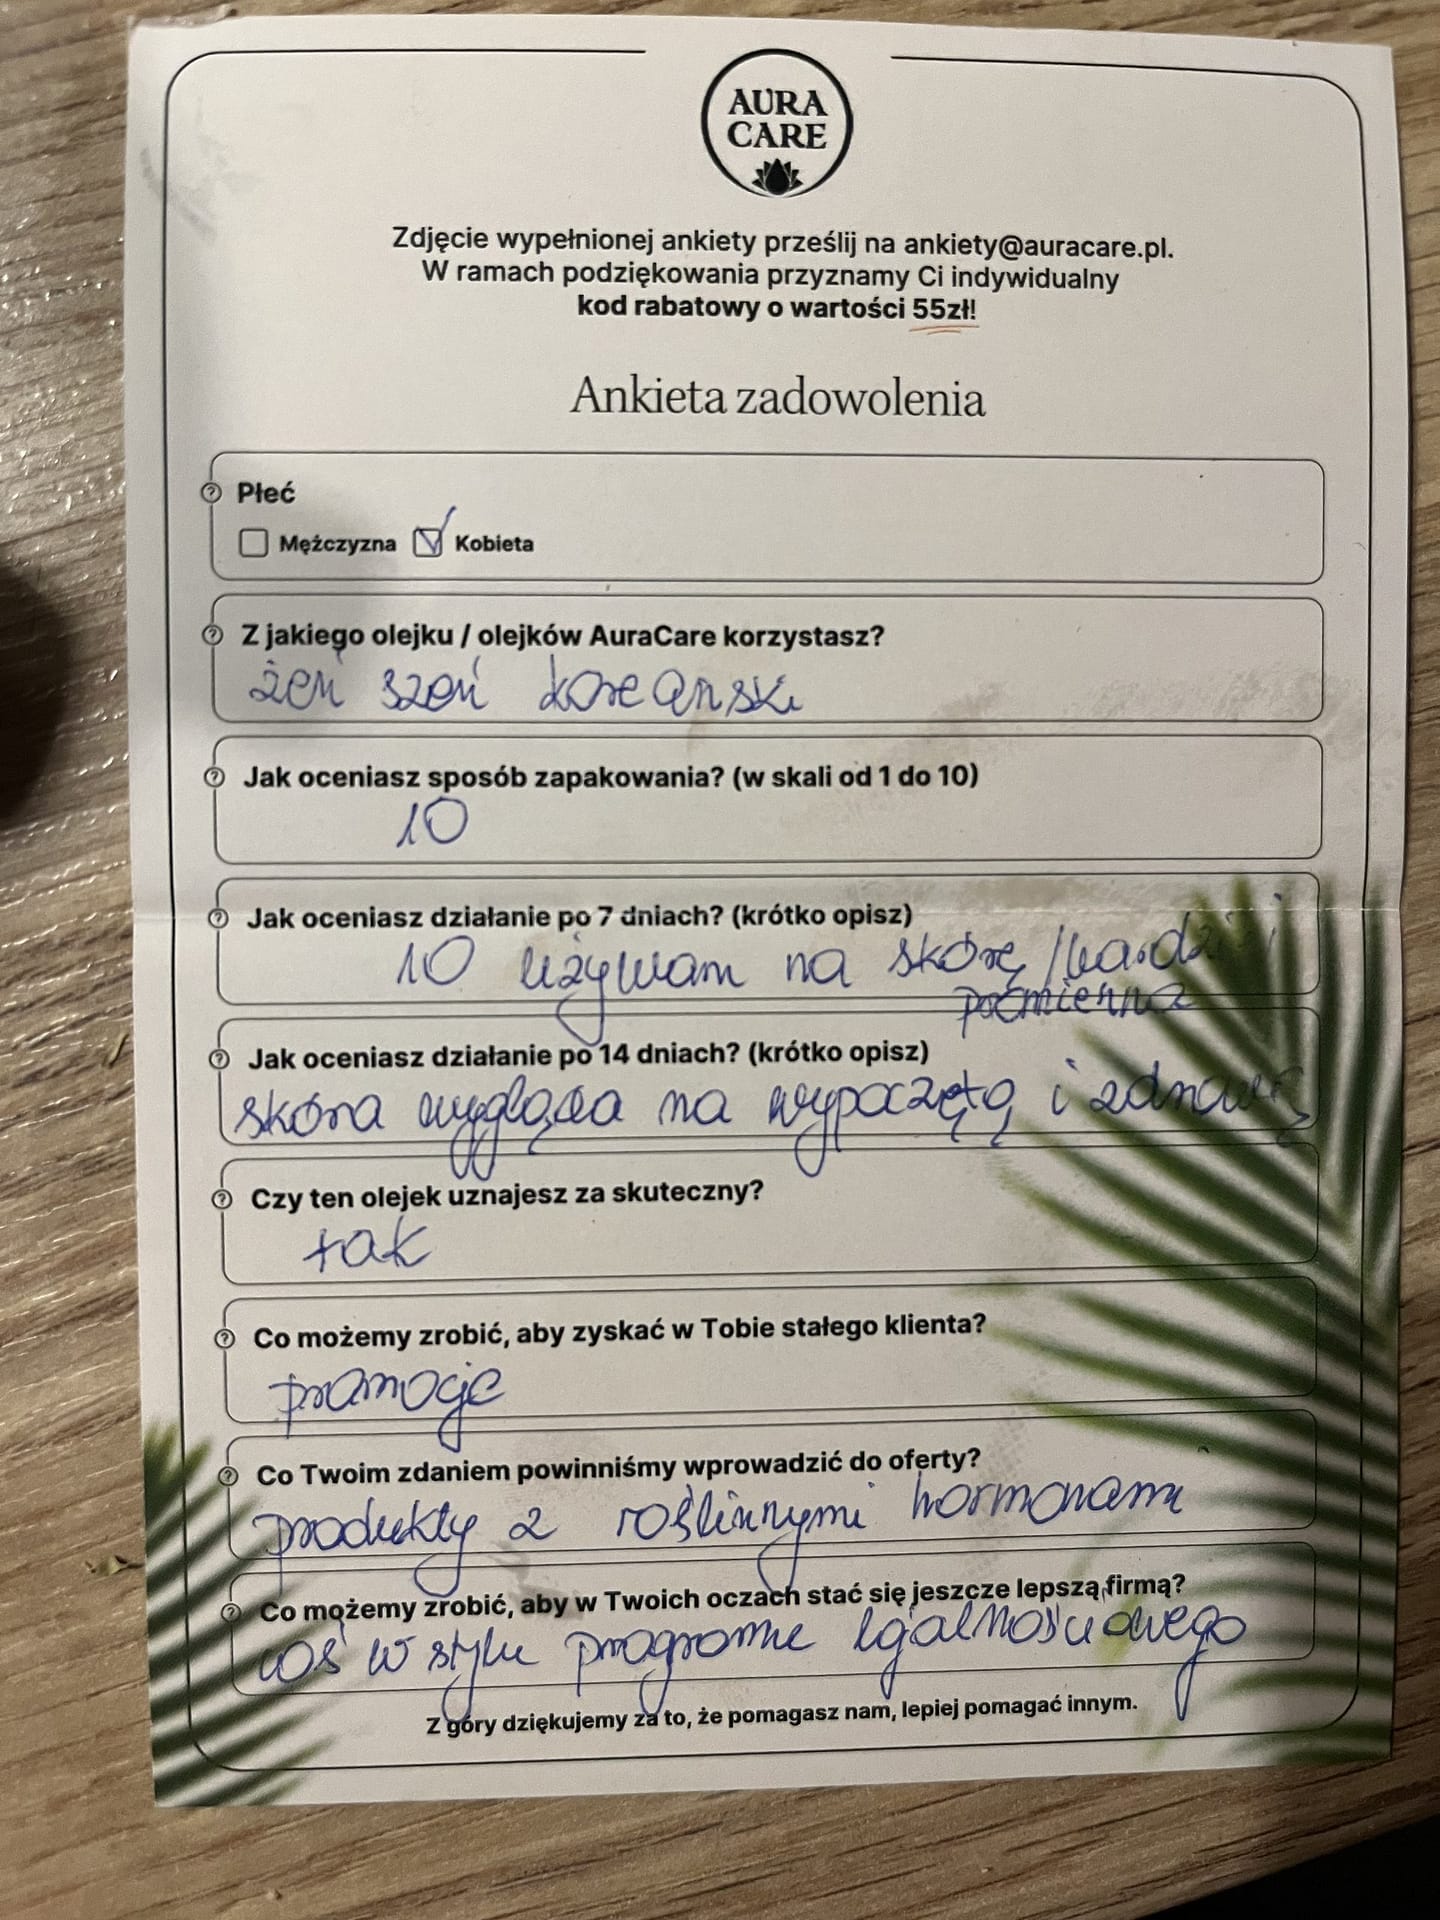 AURA
CARE
Zdjęcie wypełnionej ankiety prześlij na ankiety@auracare.pl.
W ramach podziękowania przyznamy Ci indywidualny
kod rabatowy o wartości 55zł!
Ankieta zadowolenia
Płeć
Mężczyzna Kobieta
Z jakiego olejku / olejków AuraCare korzystasz?
żeń szeń koreański
Jak oceniasz sposób zapakowania? (w skali od 1 do 10)
10
Jak oceniasz działanie po 7 dniach? (krótko opisz)
10 używam na skórę /bardziej
promienna
Jak oceniasz działanie po 14 dniach? (krótko opisz)
skóra wygląda na wypoczętą i zdrową
Czy ten olejek uznajesz za skuteczny?
tak
Co możemy zrobić, aby zyskać w Tobie stałego klienta?
promocje
Co Twoim zdaniem powinniśmy wprowadzić do oferty?
produkty z roślinnymi hormonami
Co możemy zrobić, aby w Twoich oczach stać się jeszcze lepszą firmą?
coś w stylu programu lojalnościowego
Z góry dziękujemy za to, że pomagasz nam, lepiej pomagać innym.